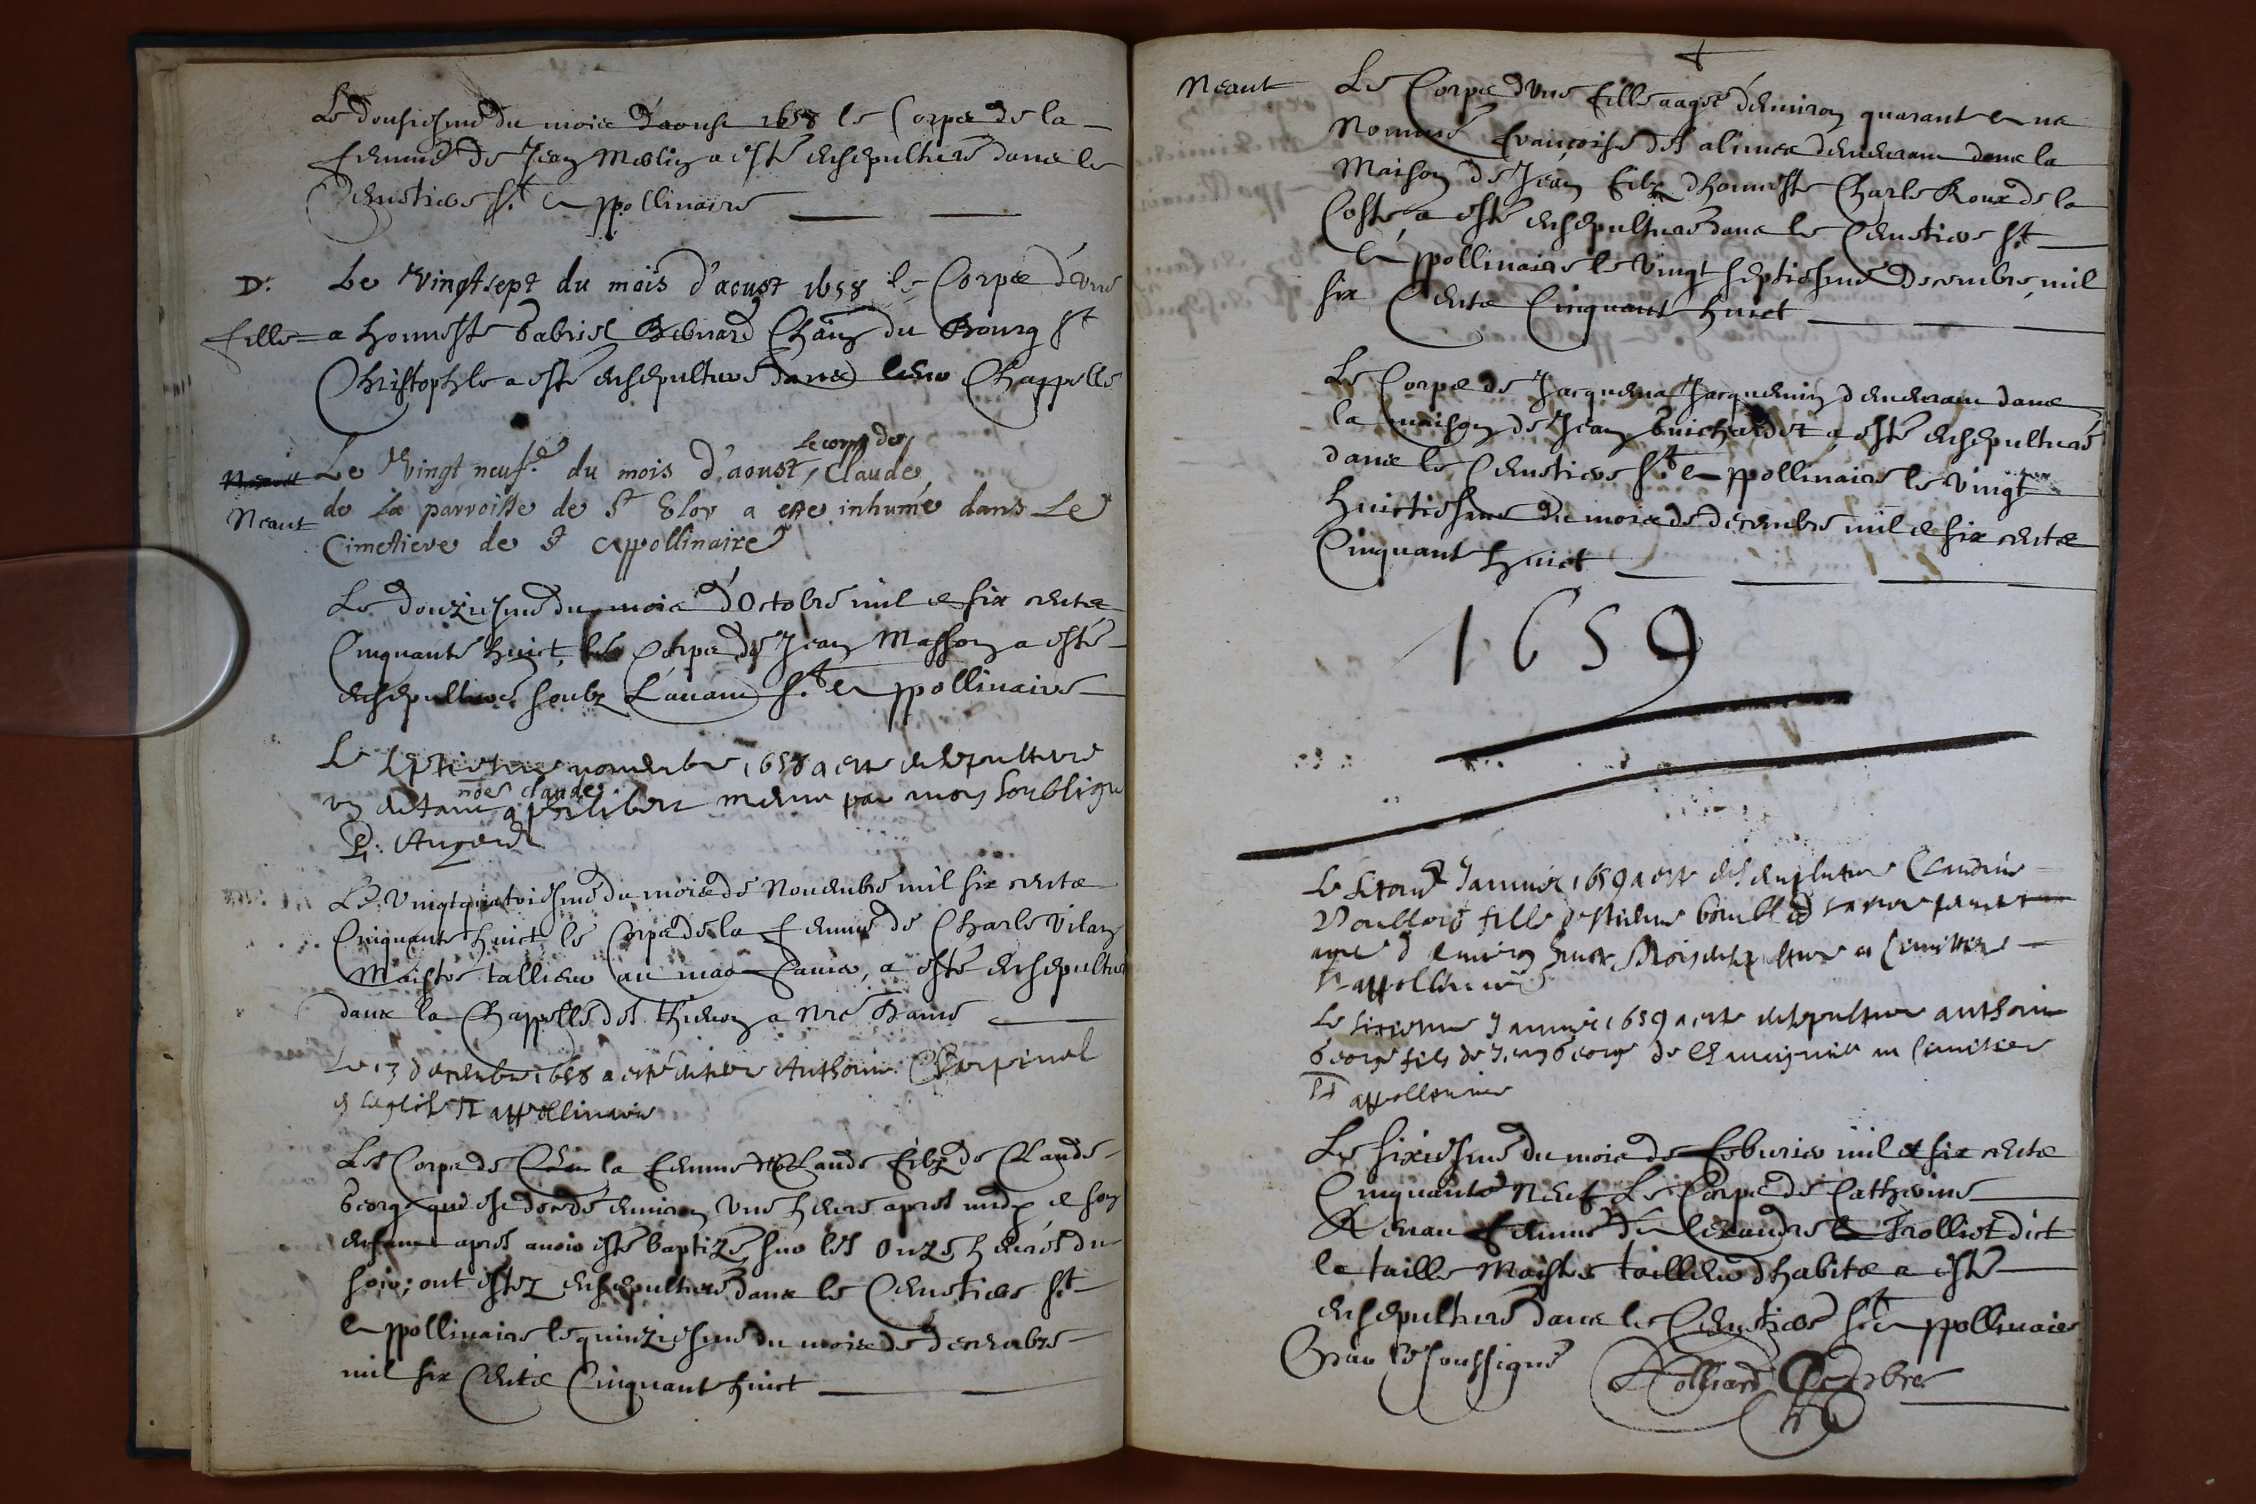 Le dousiesme du mois d'aoust 1658 le Corps de la
femme de Jean Meslin a esté ensepulturé dans le
Cemetiere St Appollinaire
D. Le Vingtsept du mois d'aoust 1658 le Corps d'une
fille a honneste Gabriel du Bourg St
Christophle a esté ensepulturé dans leur Chappelle
le corps de
Le Vingt neuf.e du mois d'aoust, Claude,
de La parroisse de St Eloy a este inhumé dans Le
Neant
Cimetiere de St Appollinaire
Le douziesme du mois d'Octobre mil e six cents
Cinquante huict, le Corps de Jean Masson a esté
ensepulturé soubz L'avant St Appollinaire
Le septiesme novembre 1658 a este ensepulturé
noē claude
un enfant a philibert par moy soubsigné
Le Vingtquatriesme du mois de Novembre mil six cents
Cinquante huict le Corps de la femme de Charle Vilain
Maistre tallieur au , a esté ensepulturé
dans la Chappelle des a Nre Dame
Le 13 decembre 1658 a esté enterré Anthoine Charpinel
en Leglise St appollinaire
Le Corps de la femme de Claude filz de Claude
George que est decedé environ une heure apres midy e son
enfant apres avoir esté baptizé sur les Onze heures du
soir; ont estez ensepulturé dans le Cemetiere St
Appollinaire le quinziesme du mois de decembre
mil six Cents Cinquant huict
Neant Le Corps d'une fille aagee d'environ quarant ans
Nommé Françoise demeurant dans la
Maison de Jean filz d'honneste Charle Roux de la
Coste, a esté ensepulturé dans le Cemetiere St
Appollinaire le Vingt septiesme decembre, mil
six Cents Cinquant huict
Le Corps de Jacquema Jacquemin demeurant dans
la maison de Jean Guichardet a esté ensepulturé
dans le Cemetiere St Appollinaire le Vingt
huictiesme du mois de decembre mil e six cents
Cinquant huict
1659
Le Janvier 1659 a este ensepulturé Claudine
fille
agee d'environ huict Mois au Cemitiere
St appollinaire
Le sixiesme Janvier 1659 a este ensepulturé anthoine
George filz de Jean George de au Cemitiere
St appollinaire
Le sixiesme du mois de Feburier mil e six cents
Cinquante Neuf Le Corps de Catherine
Renau femme d'Alexandre Trolliet dict
la taille Maistre taillieur d'habits a esté
ensepulturé dans le Cemetiere St Appollinaire
Par le soussigné